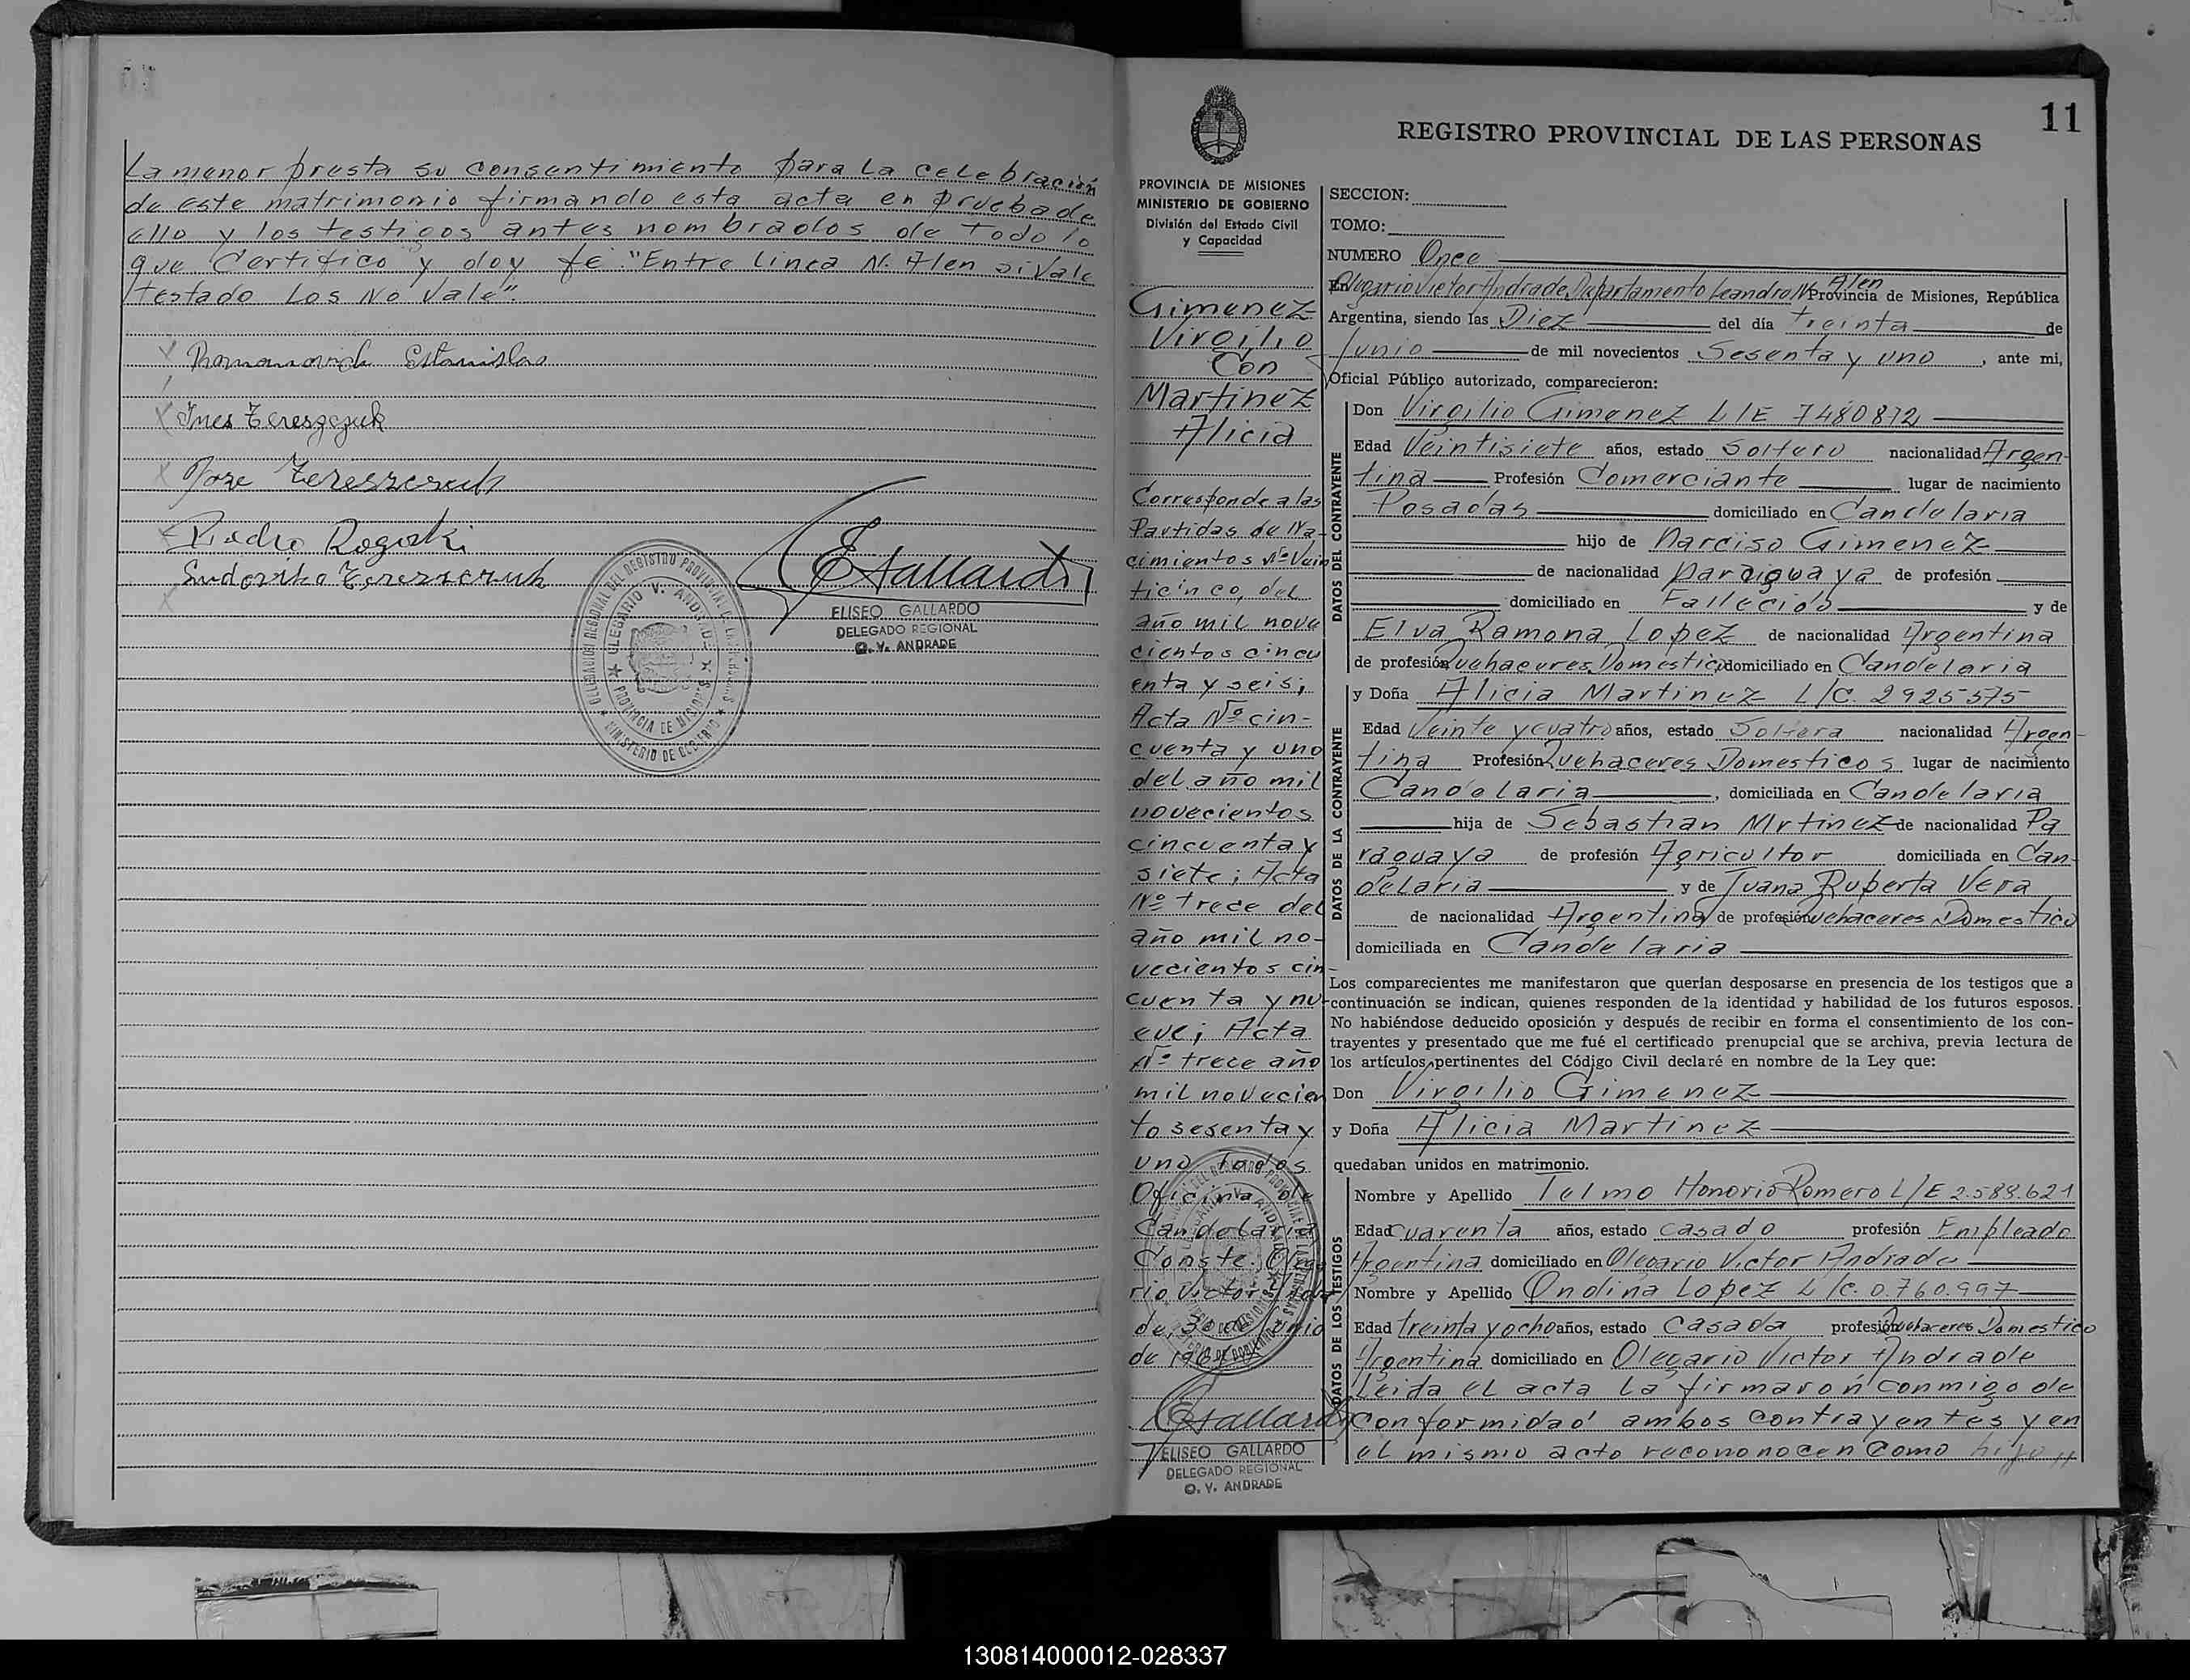 La menor presta su consentimiento para La celebración
de este matrimonio firmando esta acta en prueba de
ello y los testigos antes nombrados de todo lo
que Certifico y doy fé "Entre linea N. Alen si Vale
testado Los No Vale".
Romanovich Estanislao
Ines Tereszczuk
Jose Tereszczuk
Piedro Rogoski
Tereszczuk
EGallardo
ELISEO GALLARDO
DELEGADO REGIONAL
O. V. ANDRADE
DELEGACION REGIONAL DEL REGISTRO PROVINCIAL DE LAS PERSONAS
OLEGARIO V. ANDRADE
PROVINCIA DE MISIONES
MINISTERIO DE GOBIERNO
11
REGISTRO PROVINCIAL DE LAS PERSONAS
PROVINCIA DE MISIONES
MINISTERIO DE GOBIERNO
División del Estado Civil
y Capacidad
Gimenez
Virgilio
Con
Martinez
Alicia
Corresponde a las
Partidas de Na-
cimientos Nº Vein
ticinco, del
año mil nove
cientos cincu
enta y seis;
Acta Nº cin-
cuenta y uno
del año mil
novecientos
cincuenta y
siete; Acta
Nº trece del
año mil no-
vecientos cin-
cuenta y nu-
eve; Acta
Nº trece año
mil novecien
to sesenta y
uno Todos
Oficina de
Candelaria
Conste. Olega
rio Victor Andra
de, 30 de Junio
de 1961
EGallardo
ELISEO GALLARDO
DELEGADO REGIONAL
O. V. ANDRADE
SECCION:
TOMO:
NUMERO Once
En Olegario Victor Andrade, Departamento Leandro N. Alen Provincia de Misiones, República
Argentina, siendo las Diez del día treinta de
Junio de mil novecientos Sesenta y uno, ante mi,
Oficial Público autorizado, comparecieron:
DATOS DEL CONTRAYENTE
Don Virgilio Gimenez L/E 7480812
Edad Veintisiete años, estado Soltero nacionalidad Argen-
tina Profesión Comerciante lugar de nacimiento
Posadas domiciliado en Candelaria
hijo de Narciso Gimenez
de nacionalidad paraiguaya de profesión
domiciliado en Fallecido y de
Elva Ramona Lopez de nacionalidad Argentina
de profesión Quehaceres Domestico domiciliado en Candelaria
DATOS DE LA CONTRAYENTE
y Doña Alicia Martinez L/C. 2925575
Edad Veinte y cuatro años, estado Soltera nacionalidad Argen-
tina Profesión Quehaceres Domesticos lugar de nacimiento
Candelaria, domiciliada en Candelaria
hija de Sebastian Mrtinez de nacionalidad Pa
raguaya de profesión Agricultor domiciliada en Can-
delaria y de Juana Ruberta Vera
de nacionalidad Argentina de profesión Quehaceres Domestico
domiciliada en Candelaria
Los comparecientes me manifestaron que querían desposarse en presencia de los testigos que a
continuación se indican, quienes responden de la identidad y habilidad de los futuros esposos.
No habiéndose deducido oposición y después de recibir en forma el consentimiento de los con-
trayentes y presentado que me fué el certificado prenupcial que se archiva, previa lectura de
los artículos pertinentes del Código Civil declaré en nombre de la Ley que:
Don Virgilio Gimenez
y Doña Alicia Martinez
quedaban unidos en matrimonio.
DATOS DE LOS TESTIGOS
Nombre y Apellido Telmo Honorio Romero L/E 2.588.621
Edad Cuarenta años, estado casado profesión Empleado
Argentina domiciliado en Olegario Victor Andrade
Nombre y Apellido Ondina Lopez L/C. 0.760.997
Edad treinta y ocho años, estado Casada profesión Quehaceres Domestico
Argentina domiciliado en Olegario Victor Andrade
Leida el acta la firmaron conmigo de
conformidad ambos contrayentes y en
el mismo acto recononocen como hijo
130814000012-028337